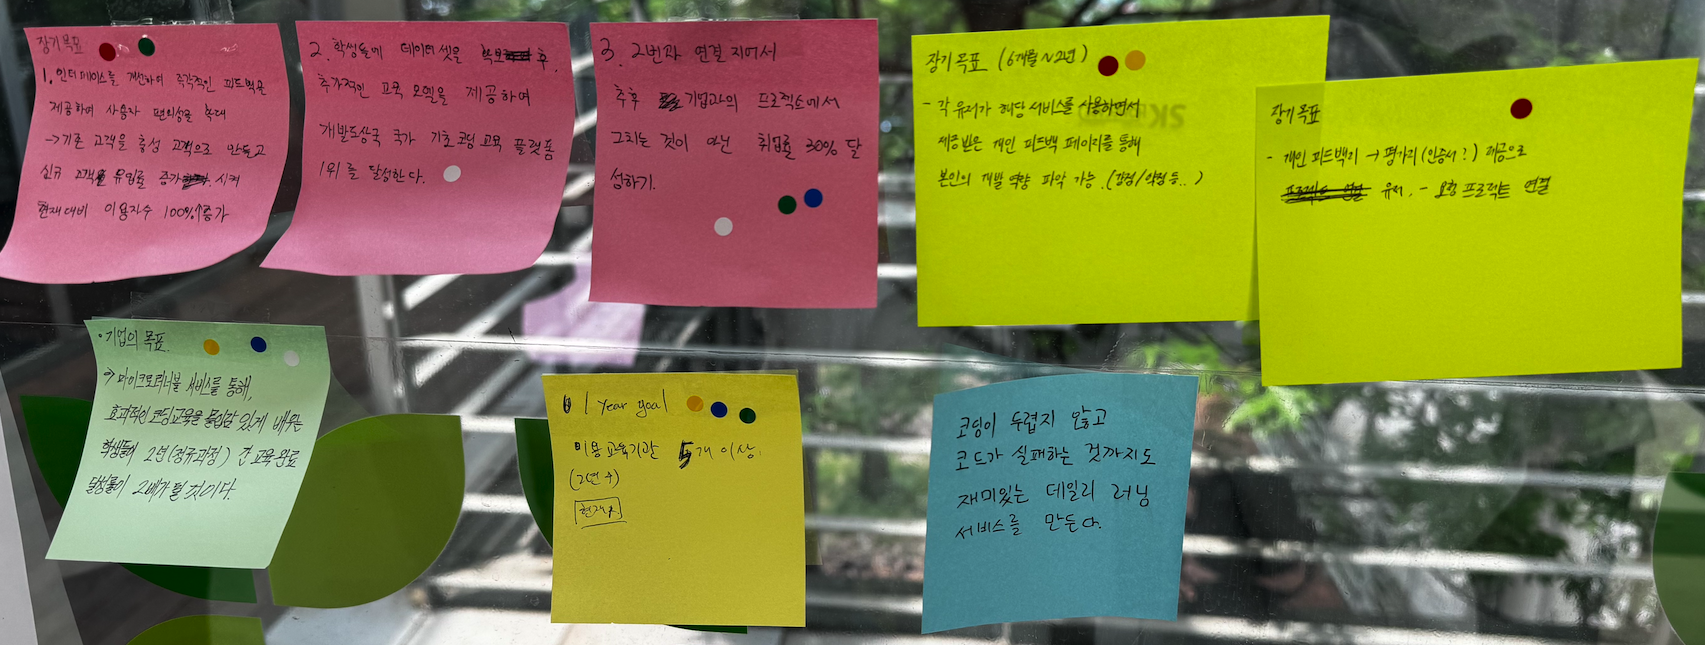 장기목표
1. 인터페이스를 개선하여 즉각적인 피드백을
제공하여 사용자 편의성을 확대
→ 기존 고객을 충성 고객으로 만들고
신규 고객 유입률 증가 시켜
현재 대비 이용자수 100%↑증가
2. 학생들에 데이터 셋을 확보 후,
추가적인 교육 모델을 제공하여
개발도상국 국가 기초 코딩 교육 플랫폼
1위를 달성한다.
3. 2번과 연결 지어서
추후 기업과의 프로젝트에서
그치는 것이 아닌 취업률 30% 달
성하기.
장기 목표 (6개월~2년)
- 각 유저가 해당 서비스를 사용하면서
제공받은 개인 피드백 페이지를 통해
본인의 개발 역량 파악 가능. (강점/약점 등..)
장기목표
- 개인 피드백지 → 평가지(인증서?) 제공으로
유저. - 요청 프로젝트 연결
• 기업의 목표.
→ 마이크로러너블 서비스를 통해,
효과적인 코딩교육을 몰입감 있게 배우는
학생들이 2년(정규과정) 간 교육 완료
달성률이 2배가 될 것이다.
1 year goal
이용 교육기관 5개 이상.
(2년 수)
코딩이 두렵지 않고
코드가 실패하는 것까지도
재미있는 데일리 러닝
서비스를 만든다.